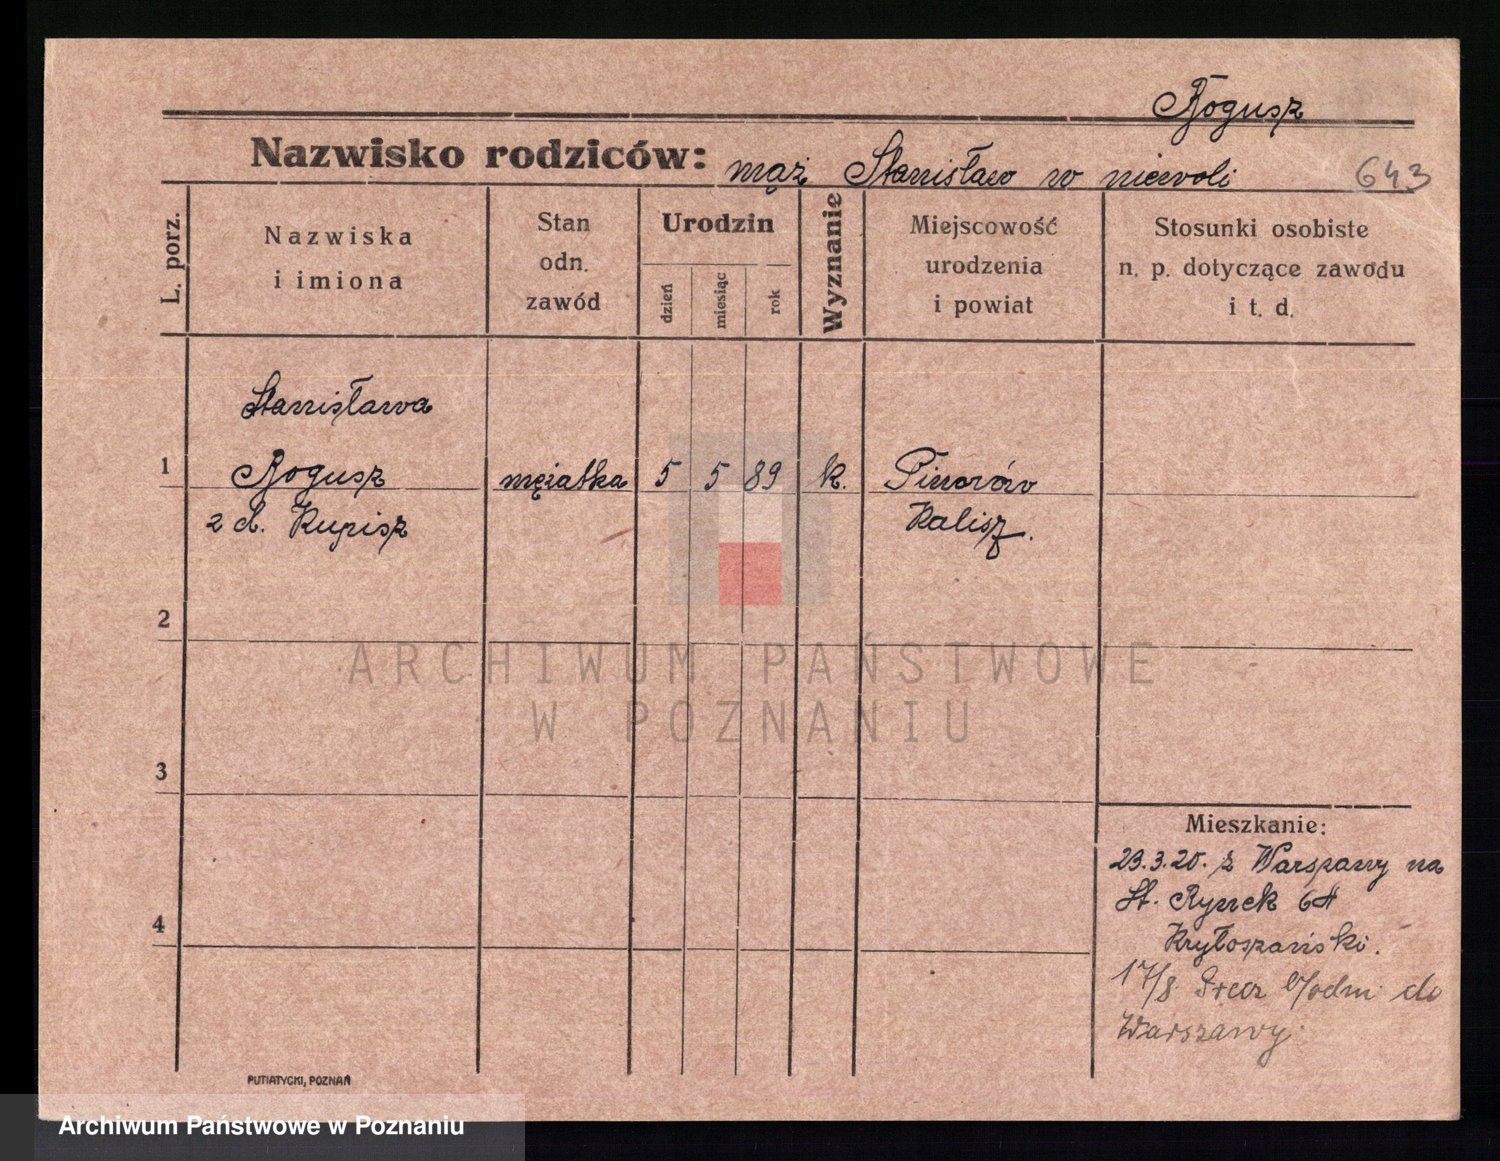 Bogusz
Nazwisko rodziców: mąż Stanisław w niewoli 643
L. porz.
Nazwiska
i imiona
Stan
odn.
zawód
Urodzin
dzień
miesiąc
rok
Wyznanie
Miejscowość
urodzenia
i powiat
Stosunki osobiste
n. p. dotyczące zawodu
i t. d.
Stanisława
1 Bogusz mężatka 5 5 89 k.
z d. Kupisz Kalisz.
2
ARCHIWUM PAŃSTWOWE
W POZNANIU
3
Mieszkanie:
23.3.20. z Warszawy na
St. Rynek
4
17/8 do
Warszawy
PUTIATYCKI, POZNAŃ
Archiwum Państwowe w Poznaniu